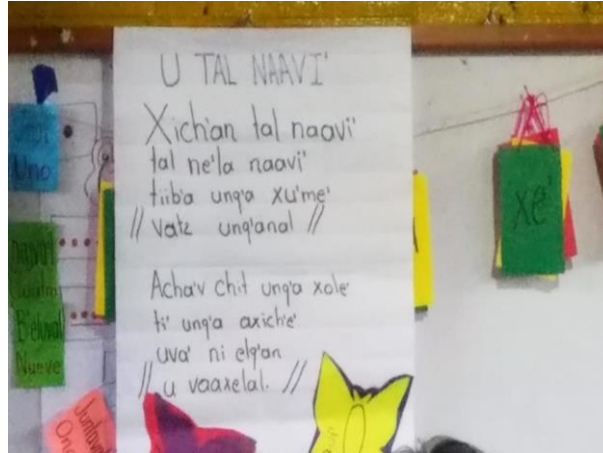 U TAL NAAVI'
Xich'an tal naavi'
tal ne'la naavi'
tiib'a unq'a xu'me'
// vatz unq'anal //
Acha'v chit unq'a xole'
ti' unq'a axich'e'
uva' ni elq'an
// u vaaxelal. //
Uno
Cuatro
B'eluval
Nueve
xe'